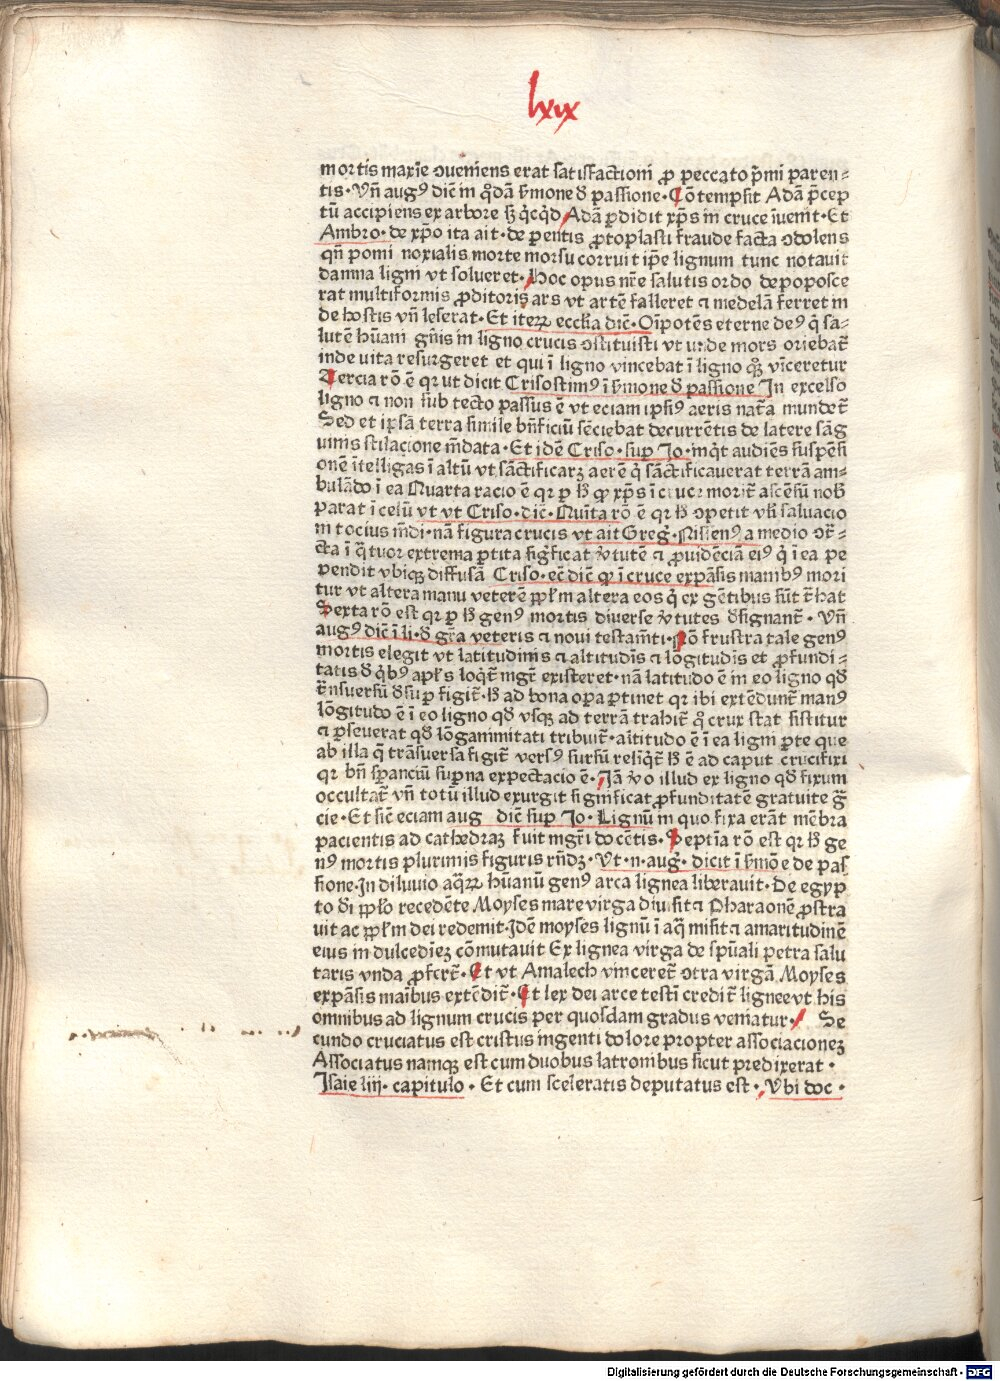 lxix
mortis maxīe ꝯueniens erat satisfactioni ꝓ peccato p̄mi paren⸗
tis· Vn̄ augꝰ dic̄ in q̊dā s̄mone d̕ passione· Cōtempsit Adā p̄cep
tū accipiens ex arbore sꝫ q̇cq̇d Adā ꝑdidit xp̄s in cruce īuenit· Et
Ambro· de xp̄o ita ait· de parentis ꝓtoplasti fraude facta ꝯdolens
qn̄ pomi noxialis morte morsu corruit ip̄e lignum tunc notauit
damna ligni vt solueret· Hoc opus nr̄e salutis ordo depoposce
rat multiformis ꝓditoris ars vt artē falleret ⁊ medelā ferret in
de hostis vn̄ leserat· Et iteꝝ eccl̄ia dic̄· Oīpotēs eterne deꝰ q̇ sa⸗
lutē hūani gn̄is in ligno crucis ꝯstituisti vt vnde mors oriebat̄
inde uita resurgeret et qui ī ligno vincebat ī ligno quoqꝫ vīceretur
Tercia rō ē qꝛ ut dicit Crisostimꝰ ī s̄mone d̕ passione In excelso
ligno ⁊ non sub tecto passus ē vt eciam ipsiꝰ aeris nat̄a mundet̄
Sed et ipsā terra simile bn̄ficiū sēciebat decurrētis de latere sāg
uinis stilacione mūdata· Et idē Criso· suꝑ Jo· inq̇t audiēs suspēsi
onē ītelligas ī altū vt sāctificarꝫ aerē q̇ sāctificauerat terrā am⸗
bulādo ī ea Quarta racio ē qꝛ ꝑ hͦ ꝙ xp̄s ī cruce morit̄ ascēsū nob̄
parat ī celū vt vt Criso· dic̄· Quīta rō ē qꝛ hͦ ꝯpetit vl̄i saluacio
ni tocius mūdi· nā figura crucis vt ait Greg̊· Nissenꝰ a medio ꝯt̄⸗
cta ī q̄tuor extrema ꝑtita sigīficat v̄tutē ⁊ ꝓuidēciā eiꝰ q̇ ī ea pe
pendit vbiqꝫ diffusā Criso· ec̄ dic̄ ꝙ ī cruce expāsis manibꝰ mori
tur vt altera manu veterē ppl̄m altera eos q̇ ex gētibus sūt t̄hat
Sexta rō est qꝛ ꝑ hͦ genꝰ mortis diuerse v̄tutes d̕signant̄· Vn̄
augꝰ dic̄ ī li· d̕ gr̄a veteris ⁊ noui testam̄ti· Nō frustra tale genꝰ
mortis elegit vt latitudinis ⁊ altitudīs ⁊ lōgitudīs et ꝓfundi⸗
tatis d̕ q̇bꝰ apl̄s loq̇t̄ mgr̄ existeret· nā latitudo ē in eo ligno qd̕
t̄nsuersū d̕suꝑ figit̄· hͦ ad bona oꝑa ꝑtinet qꝛ ibi extēdunt̄ manꝰ
lōgitudo ē ī eo ligno qd̕ vsqꝫ ad terrā trahit̄ q̊ crux stat sistitur
⁊ ꝑseuerat qd̕ lōganimitati tribuit̄· altitudo ē ī ea ligni ꝑte que
ab illa q̄ trāsuersa figit̄ versꝰ sursū reliq̇t̄ hͦ ē ad caput crucifixi
qꝛ bn̄ sperancium suꝑna expectacio ē· Jā v̊o illud ex ligno qd̕ fixum
occultat̄ vn̄ totū illud exurgit significat ꝓfunditatē gratuite gr̄
cie· Et sic̄ eciam aug dic̄ suꝑ Jo· Lignū in quo fixa erāt mēbra
pacientis ad cathedraꝫ fuit mgr̄i docētis· Septīa rō est qꝛ hͦ ge
nꝰ mortis plurimis figuris rn̄dꝫ· Vt· n· aug̊· dicit ī s̄mōe de pas
sione· In diluuio aq̄ꝝ hūanū genꝰ arca lignea liberauit· De egyp
to d̕i ppl̄o recedēte Moyses mare virga diuisit ⁊ Pharaonē ꝓstra
uit ac ppl̄m dei redemit· Idē moyses lignū ī aq̄ misit ⁊ amaritudinē
eius in dulcediēꝫ cōmutauit Ex lignea virga de spūali petra salu
taris vnda ꝓfert̄· Et vt Amalech vinceret̄ ꝯtra virgā Moyses
expāsis maībus extēdit̄· Et lex dei arce testī credit̄ lignee vt his
omnibus ad lignum crucis per quosdam gradus veniatur· Se
cundo cruciatus est cristus ingenti dolore propter associacioneꝫ
Associatus namqꝫ est cum duobus latronibus sicut predixerat·
Isaie liij· capitulo· Et cum sceleratis deputatus est· Vbi doc·
Digitalisierung gefördert durch die Deutsche Forschungsgemeinschaft - DFG